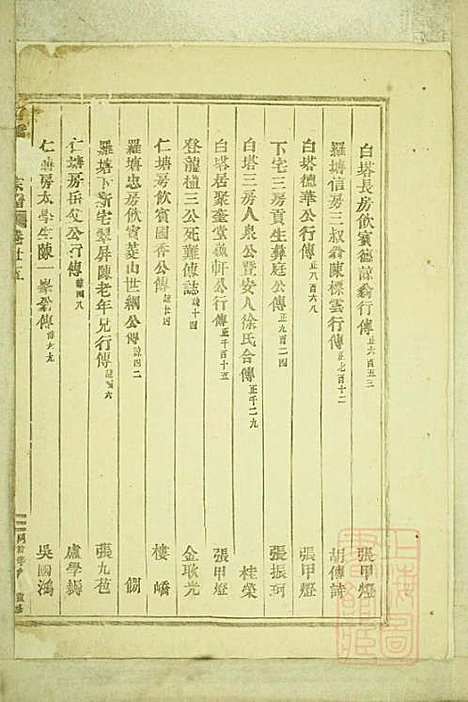 白塔長房飲賓德諒翁行傳 正六百五三 張甲燈
羅塘信房三叔翁陳標雲行傳 正七百十二 胡傳詩
白塔德華公行傳 正八百六八 張甲燈
下宅三房貢生彝庭公傳 正九百二四 張振珂
白塔三房人泉公暨安人徐氏合傳 正千二九 桂榮
白塔居聚奎堂軒公行傳 正千百十五 張甲燈
登龍橋三公死難傳誌 十四 金耿光
仁塘房飲賓國香公傳 樓嶠
羅塘忠房飲賓菱山世綱公傳 四二
羅塘下新宅翠屏陳老年兄行傳 六 張九苞
仁塘房岳公行傳 四八 盧學
仁塘房太學生陳一翁傳 吳國鴻
宗譜 卷廿五